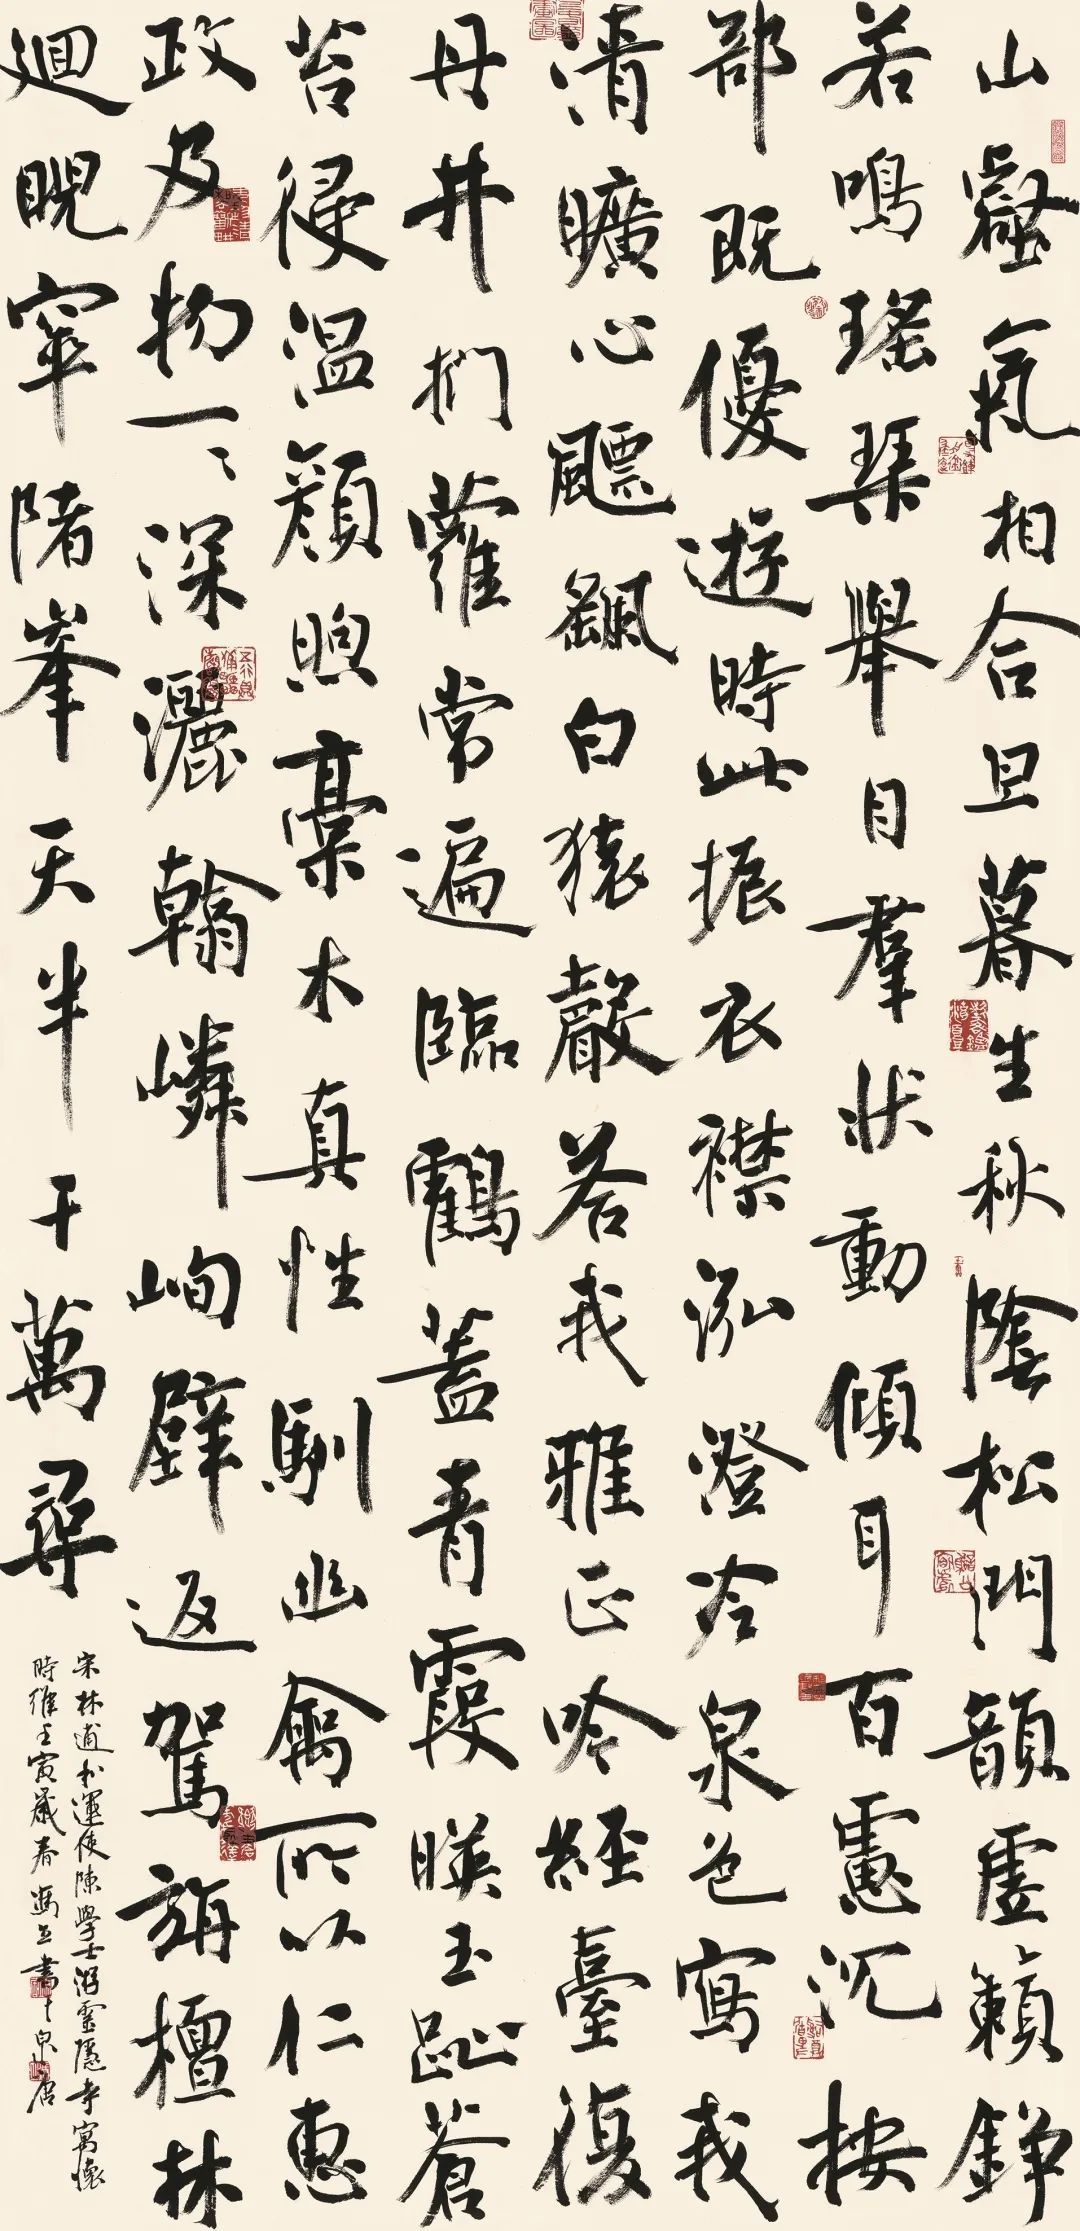 山壑氣相合旦暮生秋陰松門韻虛籟錚
若鳴瑤琴舉目羣狀動傾耳百慮沉按
部既優遊時此振衣襟泓澄冷泉色寫我
清曠心飃颻白猿聲答我雅正吟經臺復
丹井捫蘿常遍臨鶴蓋青霞暎玉趾蒼
苔侵溫顏煦槀木真性馴幽禽所以仁惠
政及物一一深灑翰嶙峋壁返駕旃檀林
迴睨窣堵峯天半千萬尋
宋林逋和運使陳學士游靈隱寺寓懷
時維壬寅歲春